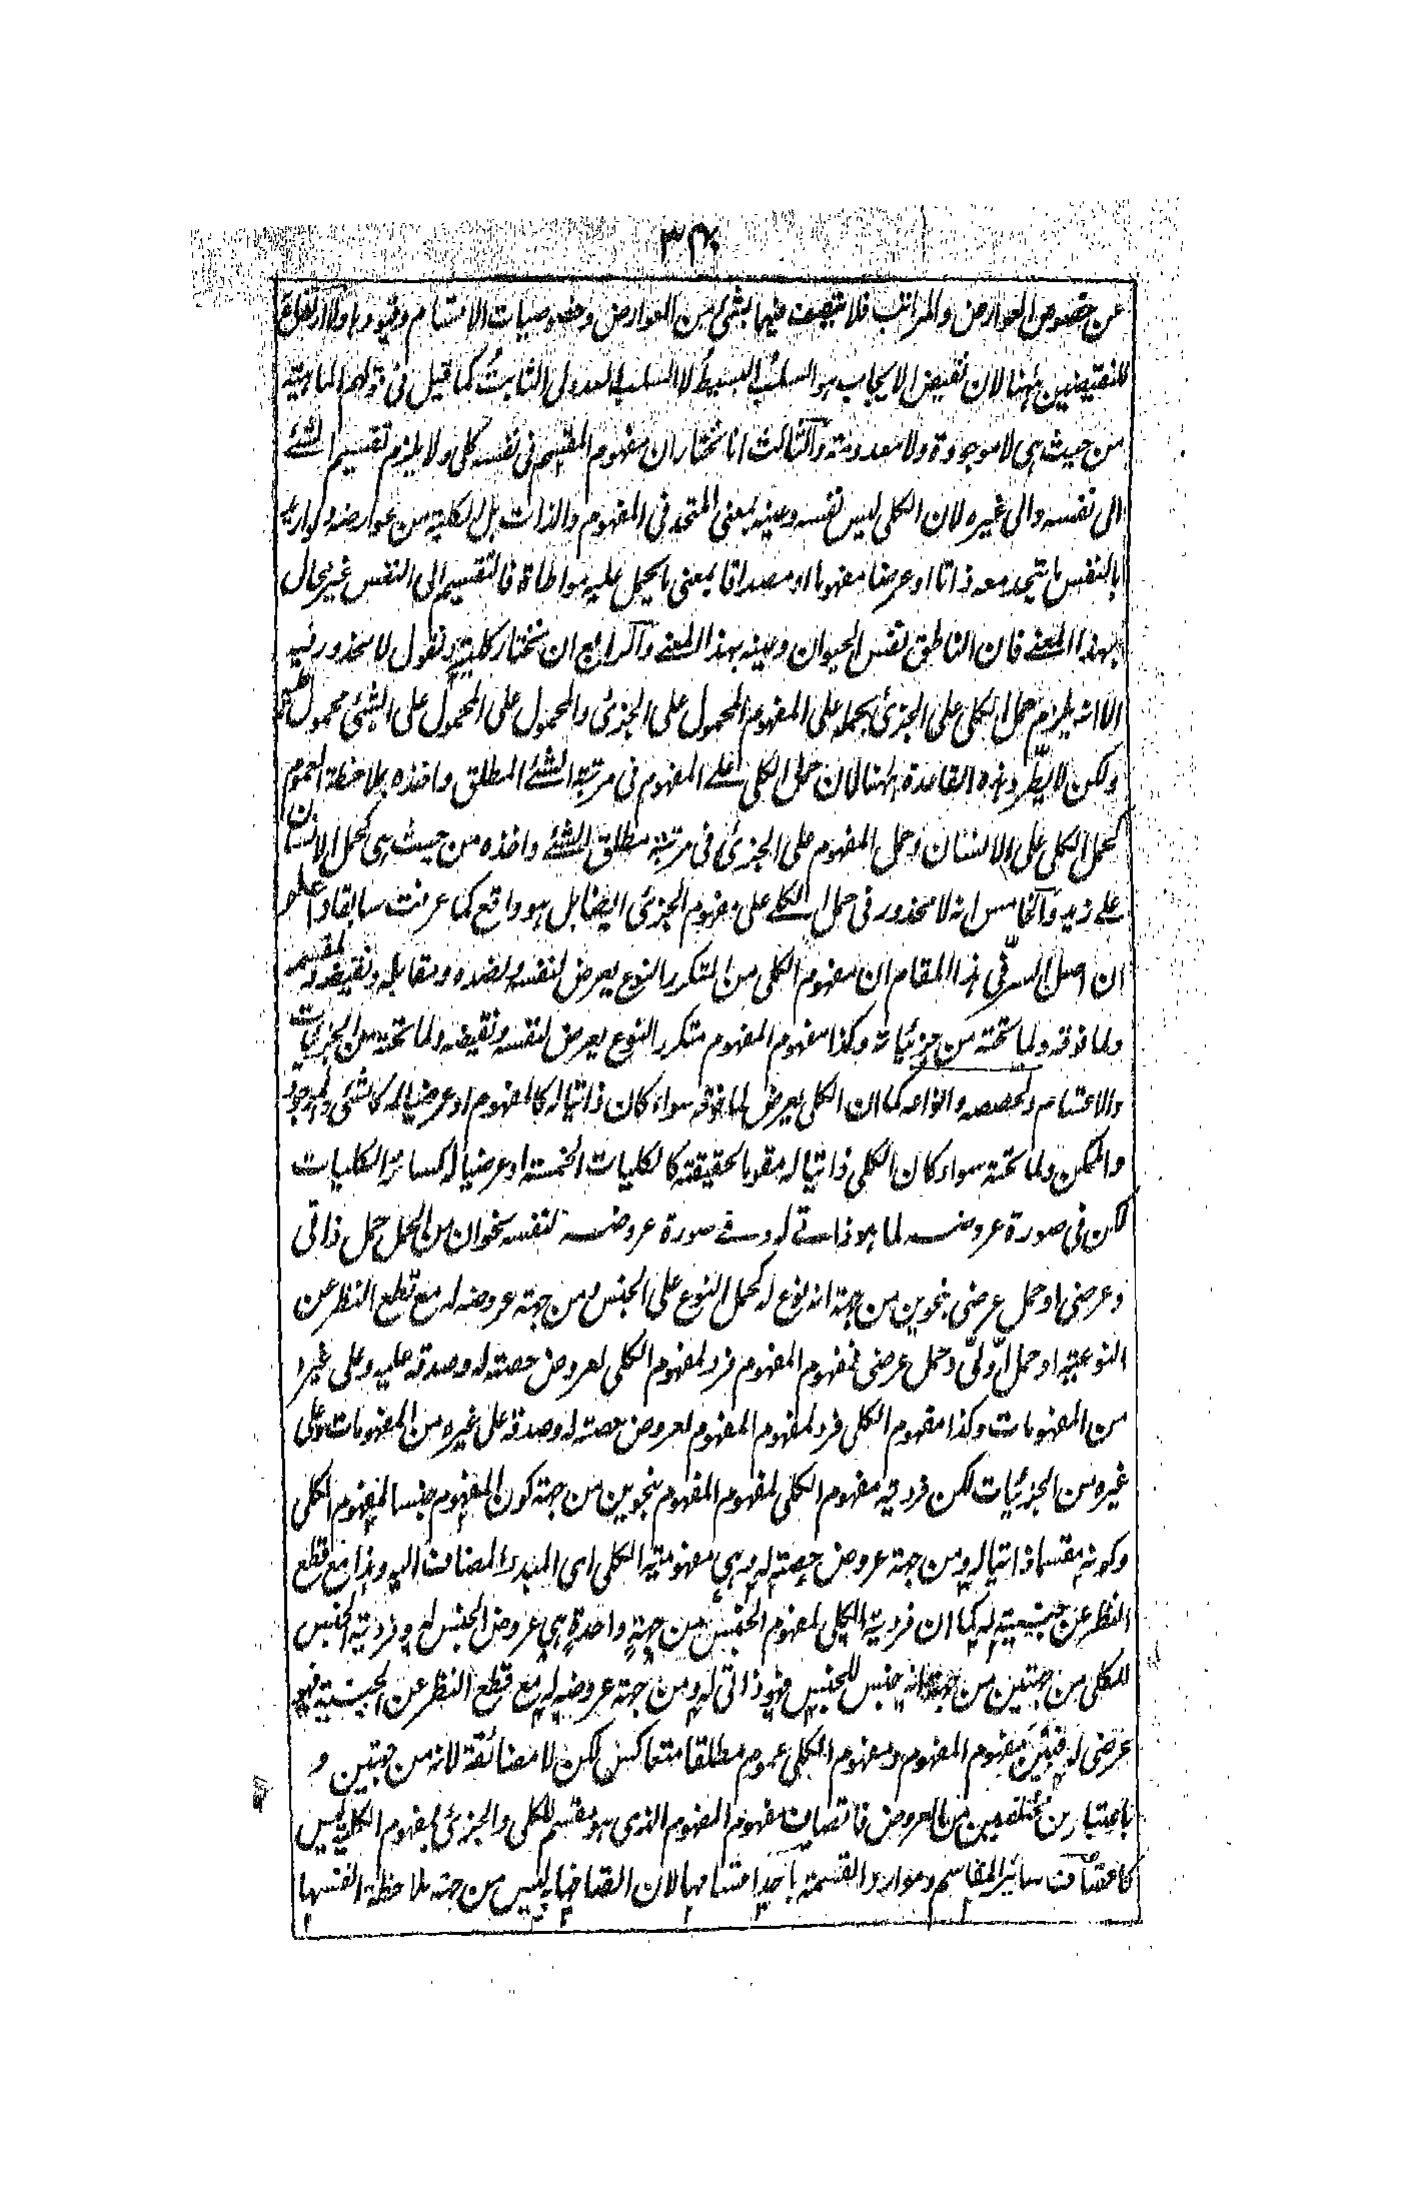 عن خصوص العوارض والمراتب فلا يتصف فيها بشئ من العوارض وخصوصيات الاقسام وقيودها ولا ارتفاع
للنقيضين ههنا لان نقيض الايجاب هو السلب البسيط لا السلب العدولى الثابت كما قيل فى قولهم الماهية
من حيث هى لا موجودة ولا معدومة والثالث انا نختار ان مفهوم المقسم فى نفسه كلى ولا يلزم تقسيم الشئ
الى نفسه والى غيره لان الكلى ليس نفسه وعينه بمعنى المتحد فى المفهوم والذات بل الكلية من عوارضه ولو اريد
بالنفس ما يتحد معه ذاتا او عرضا مفهوما او مصداقا بمعنى ما يحمل عليه مواطاة فالتقسيم الى النفس غير محال
بهذا المعنى فان الناطق نفس الحيوان وعينه بهذا المعنى والرابع ان نختار كليته ونقول لا محذور فيه
الا انه يلزم حمل الكلى على الجزئ بحمله على المفهوم المحمول على الجزئ والمحمول على المحمول على الشئ محمول عليه
ولكن لا يطّرد هذه القاعدة ههنا لان حمل الكلى على المفهوم فى مرتبة الشئ المطلق واخذه بملاحظة العموم
كحمل الكلى على الانسان وحمل المفهوم على الجزئ فى مرتبة مطلق الشئ واخذه من حيث هى كحمل الانسان
على زيد والخامس انه لا محذور فى حمل الكلى على مفهوم الجزئ ايضا بل هو واقع كما عرفت سابقا واعلم
ان اصل السرّ فى هذا المقام ان مفهوم الكلى من المتكرر النوع يعرض لنفسه ولضده ومقابله ونقيضه ولمقسمه
ولما فوقه ولما تحته من جزئياته وكذا مفهوم المفهوم متكرر النوع يعرض لنفسه ونقيضه ولما تحته من الجزئيات
والاقسام ولحصصه وانواعه كما ان الكلى يعرض لما فوقه سواء كان ذاتيا له كالمفهوم او عرضيا له كالشئ والموجود
والممكن ولما تحته سواء كان الكلى ذاتيا له مقوما لحقيقته كالكليات الخمسة او عرضيا له كسائر الكليات
لكن فى صورة عروضه لما هو ذاتى له وفى صورة عروضه لنفسه نحوان من الحمل حمل ذاتى
وعرضى او حمل عرضى بنحوين من جهة انه نوع له كحمل النوع على الجنس ومن جهة عروضه له مع قطع النظر عن
النوعية او حمل اوّلىّ وحمل عرضى فمفهوم المفهوم فرد لمفهوم الكلى لعروض حصته له وصدقه عليه وعلى غيره
من المفهومات وكذا مفهوم الكلى فرد لمفهوم المفهوم لعروض حصته له وصدقه على غيره من المفهومات وعلى
غيره من الجزئيات لكن فردية مفهوم الكلى لمفهوم المفهوم بنحوين من جهة كون المفهوم جنسا لمفهوم الكلى
وكونه مقسما ذاتيا له ومن جهة عروض حصته له وهى مفهومية الكلى اى المبدء المضاف اليه وهذا مع قطع
النظر عن جنسيته له كما ان فردية الكلى لمفهوم الجنس من جهة واحدة هى عروض الجنس له وفردية الجنس
للكلى من جهتين من جهة انه جنس للجنس فهو ذاتى له ومن جهة عروضه له مع قطع النظر عن الجنسية فهو
عرضى له فبين مفهوم المفهوم ومفهوم الكلى عموم مطلقا متعاكس لكن لا مضائقة لانه من جهتين و
باعتبارين مختلفين من العروض فاتصاف مفهوم المفهوم الذى هو مقسم للكلى والجزئ بمفهوم الكلى ليس
كاتصاف سائر المقاسم وموارد القسمة باحد اقسامها لان اتصافها به ليس من جهة ملاحظة انفسها